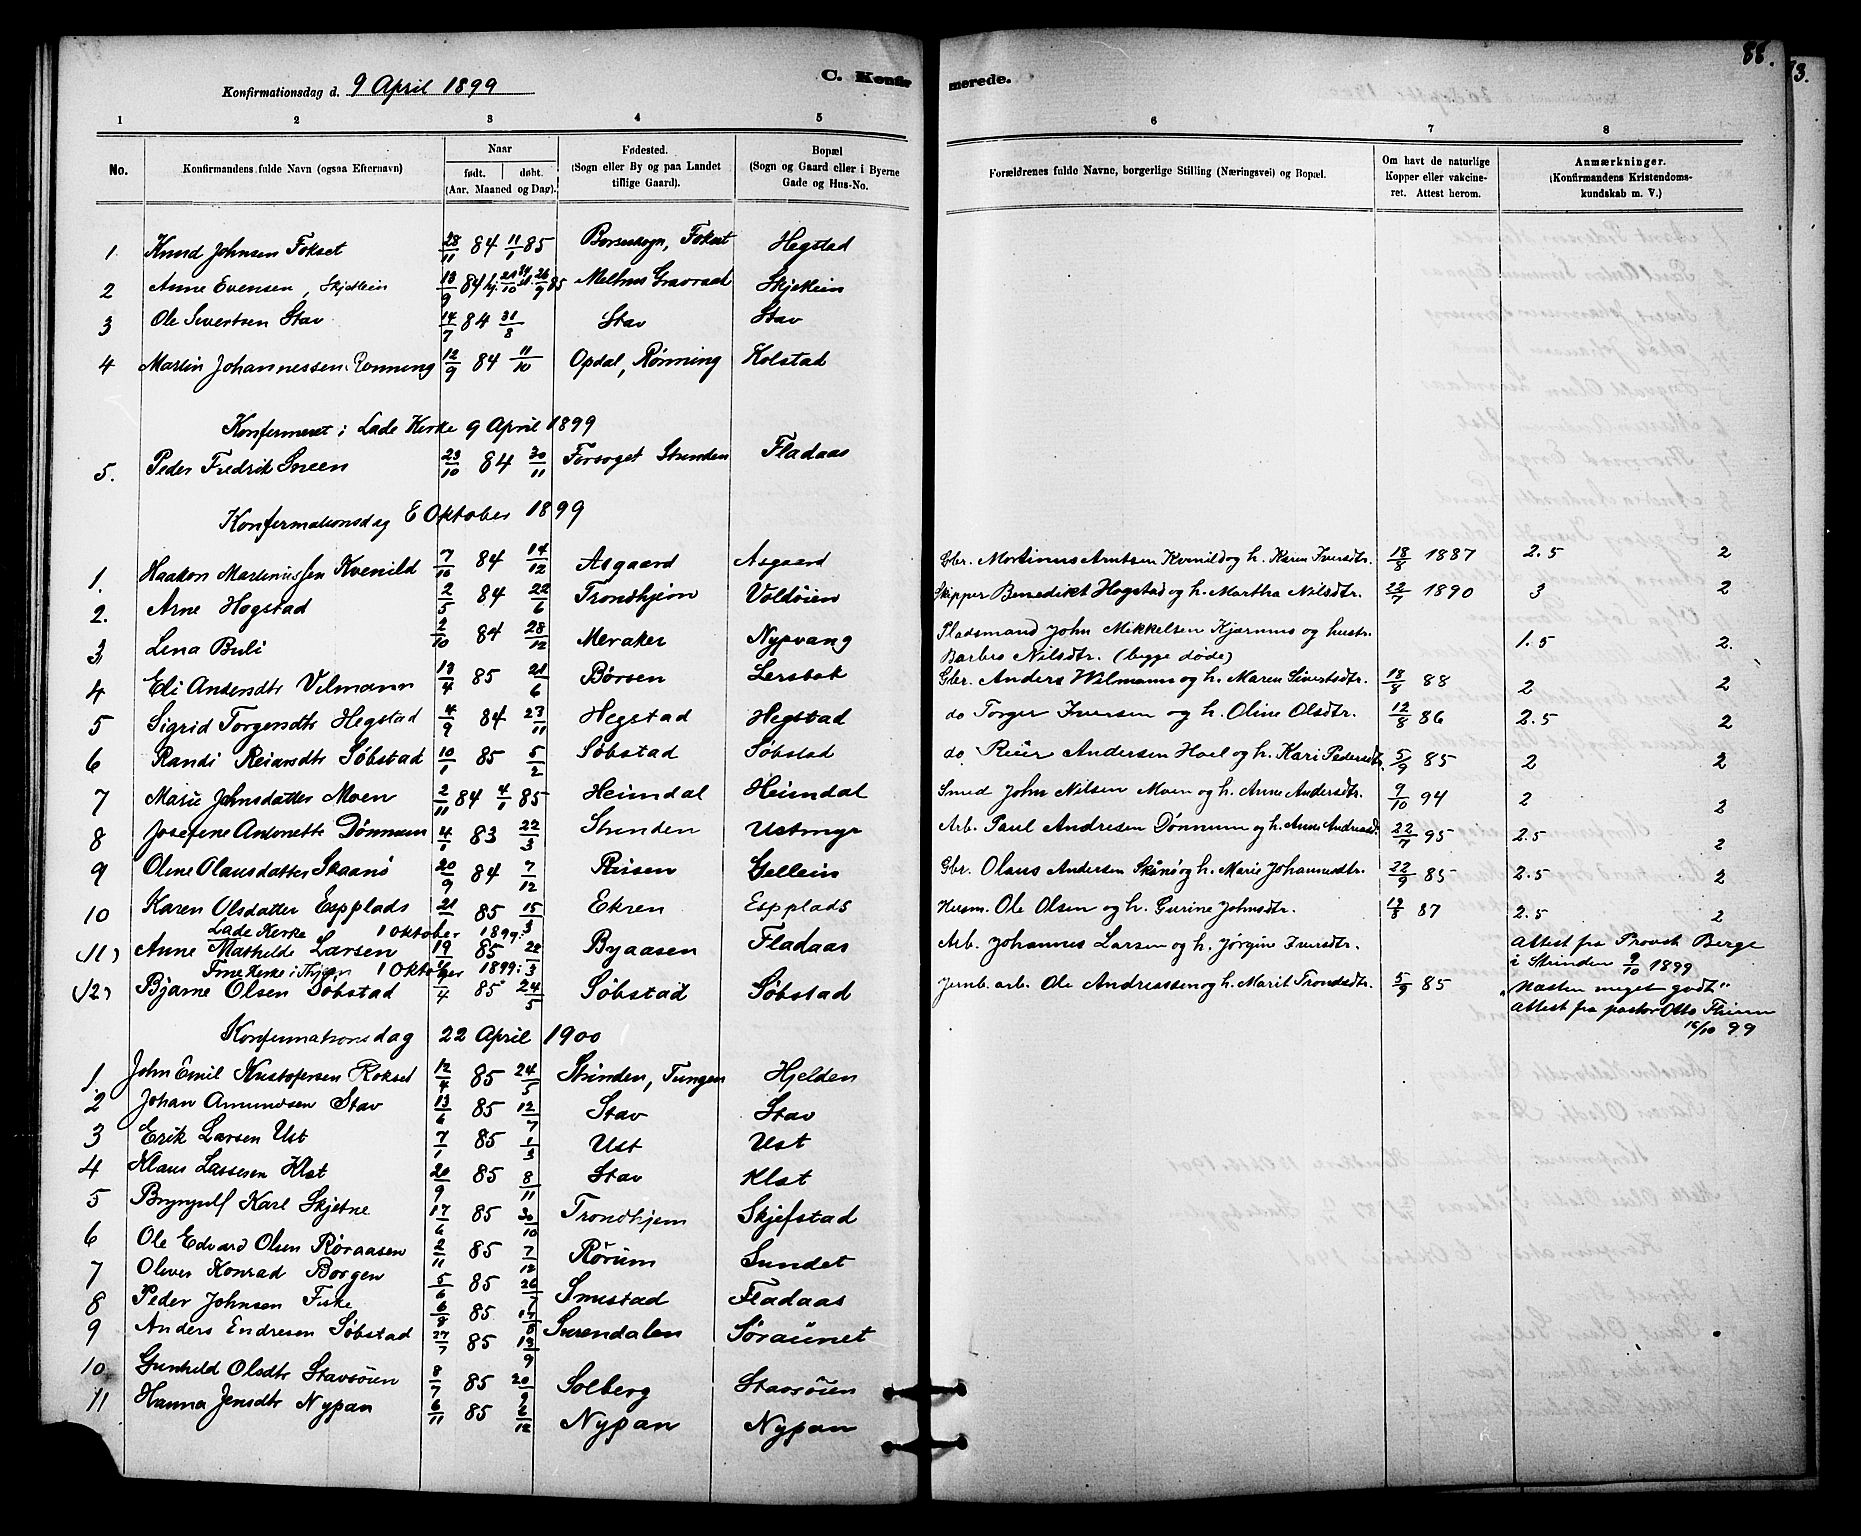 88.
3.
Konfirmationsdag d. 9 April 1899
C. Konfir merede.
1 2 3 4 5 6 7 8
No. Konfirmandens fulde Navn (ogsaa Efternavn) Naar født. døbt. (Aar. Maaned og Dag). Fødested. (Sogn eller By og paa Landet tillige Gaard). Bopæl (Sogn og Gaard eller i Byerne Gade og Hus-No. Forældrenes fulde Navne, borgerlige Stilling (Næringsvei) og Bopæl. Om havt de naturlige Kopper eller vakcineret. Attest herom. Anmærkninger. (Konfirmandens Kristendomskundskab m. V.)
1 Knud Johnsen Fokset 28/11 84 11/1 85 Børsesogn, Fokset Hegstad
2 Anne Evensen, Skjetlein 13/9 84 Melhus Gravraak Skjetlein
3 Ole Sivertsen Stav 14/7 84 31/8 Stav Stav
4 Martin Johannessen Rønning 12/9 84 11/10 Opdal, Rønning Kolstad
Konfirmeret i Lade Kirke 9 April 1899
5. Peder Fredrik Soreen 23/10 84 30/11 Forsøget Strinden Fladaas
Konfirmationsdag Oktober 1899
1. Haakon Martinussen Kvenild 7/10 84 14/12 Asgaard Asgaard Gbr. Mortinus Arntsen Kvenild og h. Karen Iversdtr. 18/8 1887 2.5 2
2. Arne Hogstad 2/5 84 22/6 Trondhjem Voldøien Skipper Benedikt Hogstad og h. Martha Nilsdtr. 22/7 1890 3 2
3 Lena Buli 2/10 84 28/12 Meraker Nypvang Pladsmand John Mikkelsen Kjærnus og hustr. 1.5 2.
Barbro Nilsdtr. (begge døde)
4 Eli Andersdtr Vilmann 13/4 85 21/6 Børsen Lerstok Gbr. Anders Wilmann og h. Maren Sivertsdtr. 18/8 88 2 2
5 Sigrid Torgersdtr Hegstad 4/9 84 23/11 Hegstad Hegstad do Torger Iversen og h. Oline Olsdtr. 12/8 86 2.5 2
6 Randi Reiarsdtr Søbstad 10/1 85 5/2 Søbstad Søbstad do Reier Andersen Hoel og h. Kari Pedersdtr. 5/9 85 2 2
7 Marie Johnsdatter Moen 2/11 84 4/1 85 Heimdal Heimdal Smed John Nilsen Moen og h. Anne Andersdtr. 9/10 94 2 2
8 Josefine Antonette Dønnum 4/1 83 22/3 Strinden Ustmyr Arb. Paul Andresen Dønnum og h. Anne Andreasd. 22/7 95 2.5 2
9 Oline Olausdatter Skaanø 20/9 84 7/12 Risen Gellein Gbr. Olaus Andersen Skånø og h. Marie Johannesdtr. 22/9 85 2.5 2
10 Karen Olsdatter Espplads 21/1 85 15/3 Ekren Espplads Husm. Ole Olsen og h. Gurine Johnsdtr. 19/8 87 2.5 2
Lade Kirke 1 Oktober 1899:
(11) Anne Mathilde Larsen 19/1 85 22/3 Byaasen Fladaas Arb. Johannes Larsen og h. Jørgine Iversdtr. Attest fra Provst Berge
i Strinden 9/10 1899
Frue Kirke i Thjem 1 Oktober 1899:
(12) Bjarne Olsen Søbstad 1/4 85 24/5 Søbstad Søbstad Jernb. arb. Ole Andreassen og h. Marit Trondsdtr. 5/9 85 "Næsten meget godt"
Attest fra pastor Otto Thiem
15/10 99
Konfirmationsdag 22 April 1900
1. John Emil Kristofersen Rokset 12/4 85 24/5 Strinden, Tungen Hjelden
2 Johan Amundsen Stav 13/6 85 12/7 Stav Stav
3 Erik Larsen Ust 7/1 85 1/3 Ust Ust
4 Klaus Lassesen Klet 20/9 85 8/11 Stav Klet
5 Brynjulf Karl Skjetne 17/6 85 30/10 Trondhjem Skjefstad
6 Ole Edvard Olsen Røraasen 2/11 85 7/12 Rørum Sundet
7 Oliver Konrad Borgen 5/6 85 26/7 Smestad Fladaas
8 Peder Johnsen Fiske 6/8 85 Surendalen Søraunet
9 Anders Endresen Søbstad 27/7 85 13/9
10 Gunhild Olsdtr Stavsøien 8/7 85 20/9 Solberg Stavsøien
11 Hanna Jensdtr Nypan 6/11 85 6/12 Nypan Nypan